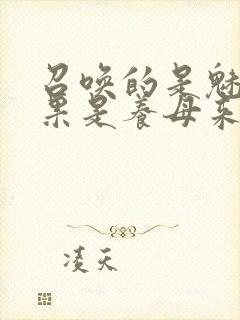 召唤的是魅
果是养母来
凌天